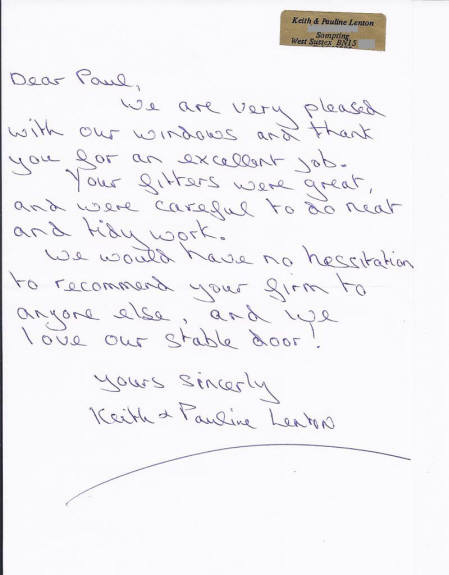 Keith & Pauline Lenton
Sompting
West Sussex BN15
Dear Paul,
We are very pleased
with our windows and thank
you for an excellent job.
Your fitters were great,
and were careful to do neat
and tidy work.
We would have no hessitation
to recommend your firm to
anyone else, and we
love our stable door!
yours sincerly
Keith & Pauline Lenton